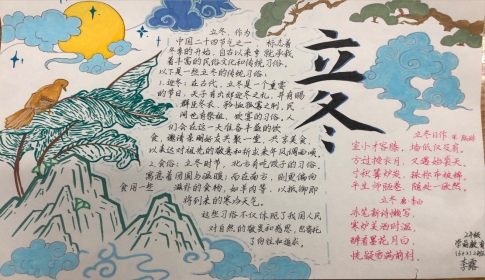 立冬，作为
中国二十四节气之一，标志着
冬季的开始，自古以来孕就承载
着丰富的民俗文化和传统习俗。
以下是一些立冬的传统习俗：
1.迎冬：在古代，立冬是一个重要
的节日，天子有出郊迎冬之礼，并有赐
群臣冬衣、矜恤孤寡之制，民
间也有祭祖、饮宴的习俗，人
们会在这一天准备丰盛的饮
食，邀请亲朋好友齐聚一堂，共享美食，
以来达对祖先的敬意和祈求来年风调雨顺。
2.食俗：立冬时节，北方有吃饺子的习俗，
寓意着团圆与温暖；而在南方，则更偏向
食用一些滋补的食物，如羊肉等，以抵御即
将到来的寒冷天气。
这些习俗不仅体现了我国人民
对自然的敬畏和感恩，也寄托
了向往和追求。
立冬
立冬日作
室小才容膝，墙低仅及肩。
方过授衣月，又遇始裘天。
寸积篝炉炭，铢称布被绵。
平生师陋巷，随处一欣然。
立冬
冻笔新诗懒写，
寒炉美酒时温。
醉看墨花月白，
恍疑雪满前村。
李露